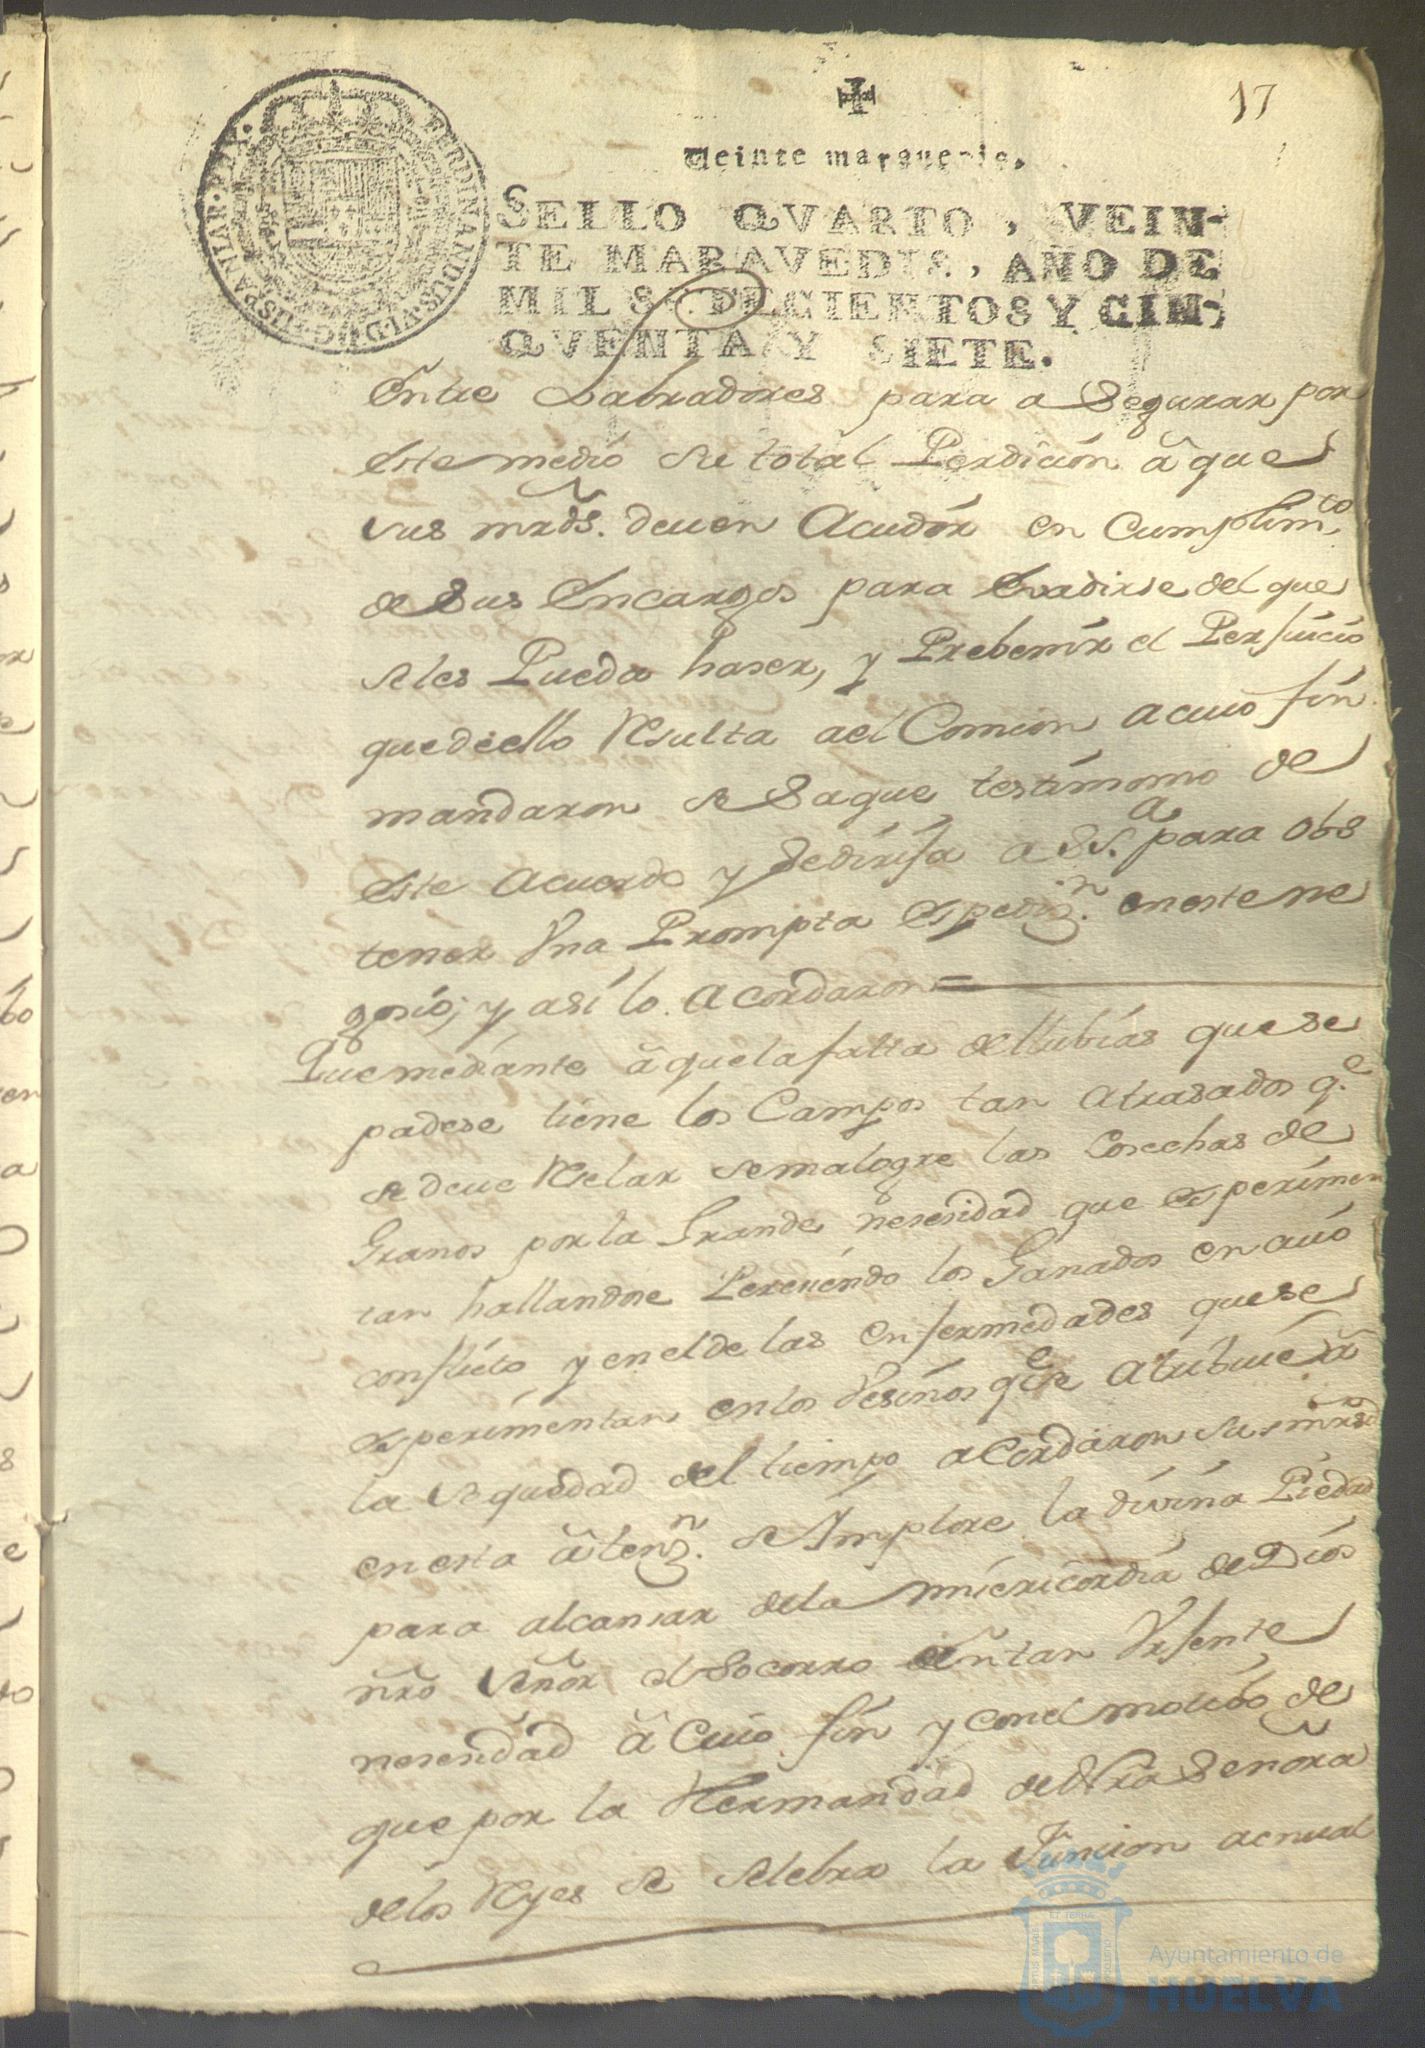 17
Veinte maravedis.
SELLO QVARTO, VEIN-
TE MARAVEDIS, AÑO DE
MIL SETECIENTOS Y CIN-
QVENTA Y SIETE.
FERDINANDUS·VI·D·G·HISPANIAR·REX·
Entre Labradores para a Segurar por
este medio su total Perdicion â que
sus mrds. deuen Acudir en Cumplimto
de sus Encargos para Evadirse del que
se les Pueda haser, y Prebenir el Perjuicio
que de ello Resulta a el Comun a cuio fin
mandaron se Saque testimonio de
este Acuerdo y se dirija a S.S.a para obs
tener Una Prompta espediz.n en este ne
gosio; y asi lo acordaron=
Que mediante â que la falta de llubias que se
padese tiene los Campos tan atrasados q.e
se deue Reselar se malogre las Cosechas de
Granos por la Grande nesesidad que esperimen
tan hallandose Pereciendo los Ganados en cuio
conflicto y en el de las enfermedades que se
esperimentan en los Vesinos q.e se atribuie â
la sequedad del tiempo acordaron sus mrds
en esta âtenz.n se Implore la divina Piedad
para alcansar de la misericordia de Dios
nro Señor el Socorro en tan Vrjente
nesesidad â Cuio fin y con el motibo de
que por la Hermandad de Nra Señora
de los Reyes se selebra la Funcion acnual
Ayuntamiento de
HUELVA